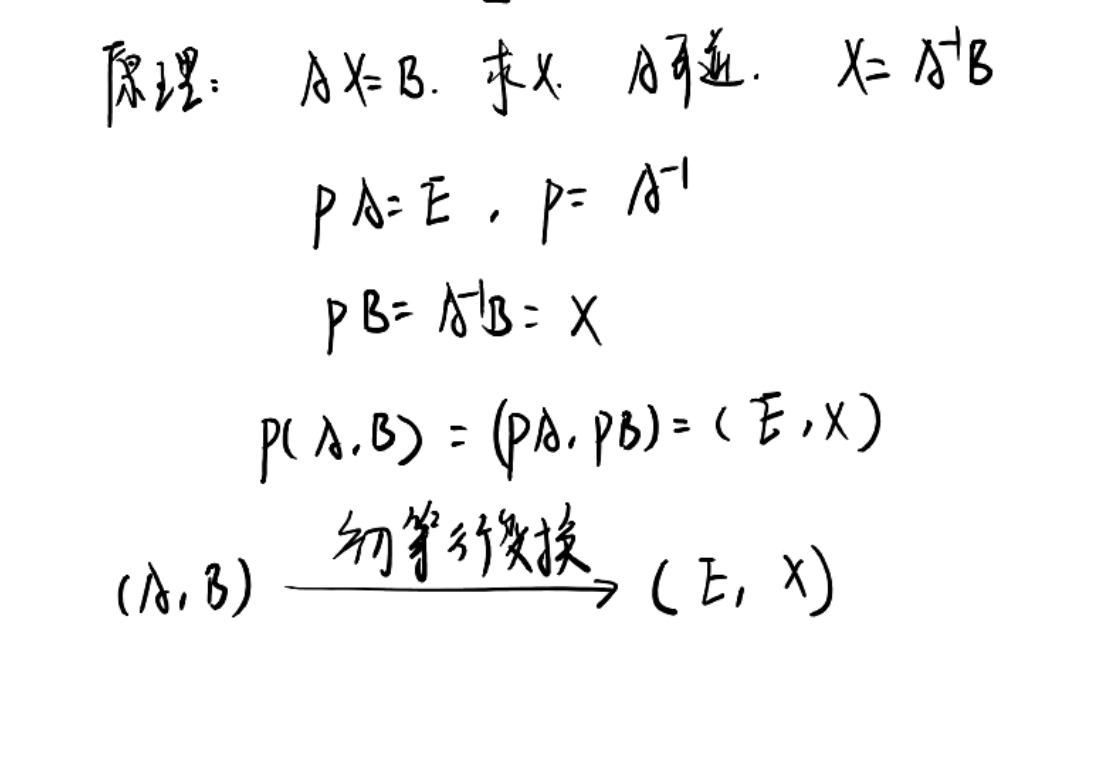 原理: AX=B. 求X. A可逆. X=A⁻¹B
PA=E, P=A⁻¹
PB=A⁻¹B=X
P(A,B)=(PA,PB)=(E,X)
初等行变换
(A,B) → (E,X)